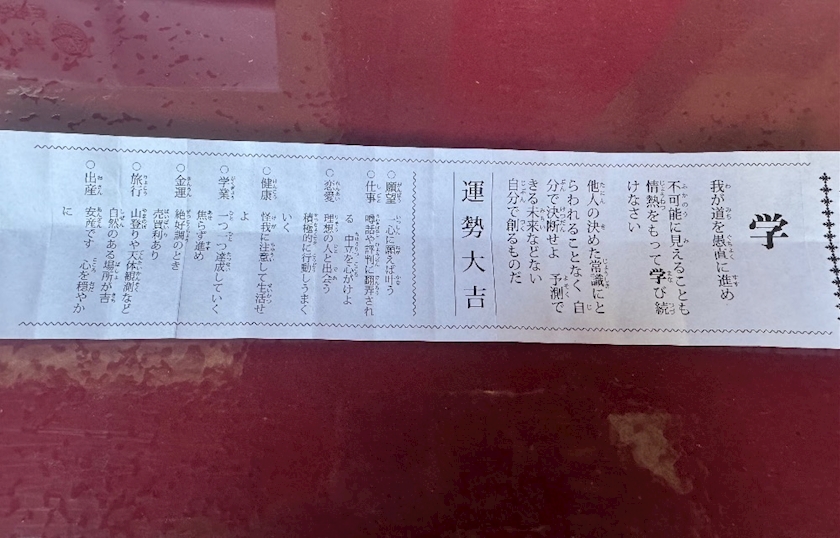 学
我が道を愚直に進め
不可能に見えることも
情熱をもって学び続
けなさい
他人の決めた常識にと
らわれることなく 自
分で決断せよ 予測で
きる未来などない
自分で創るものだ
運勢大吉
○願望 心に願えば叶う
○仕事 噂話や評判に翻弄され
る 中立を心がけよ
○恋愛 理想の人と出会う
積極的に行動しうまく
いく
○健康 怪我に注意して生活せ
よ
○学業 一つ一つ達成していく
焦らず進め
○金運 絶好調のとき
売買利あり
○旅行 山登りや天体観測など
自然のある場所が吉
○出産 安産です 心を穏やか
に